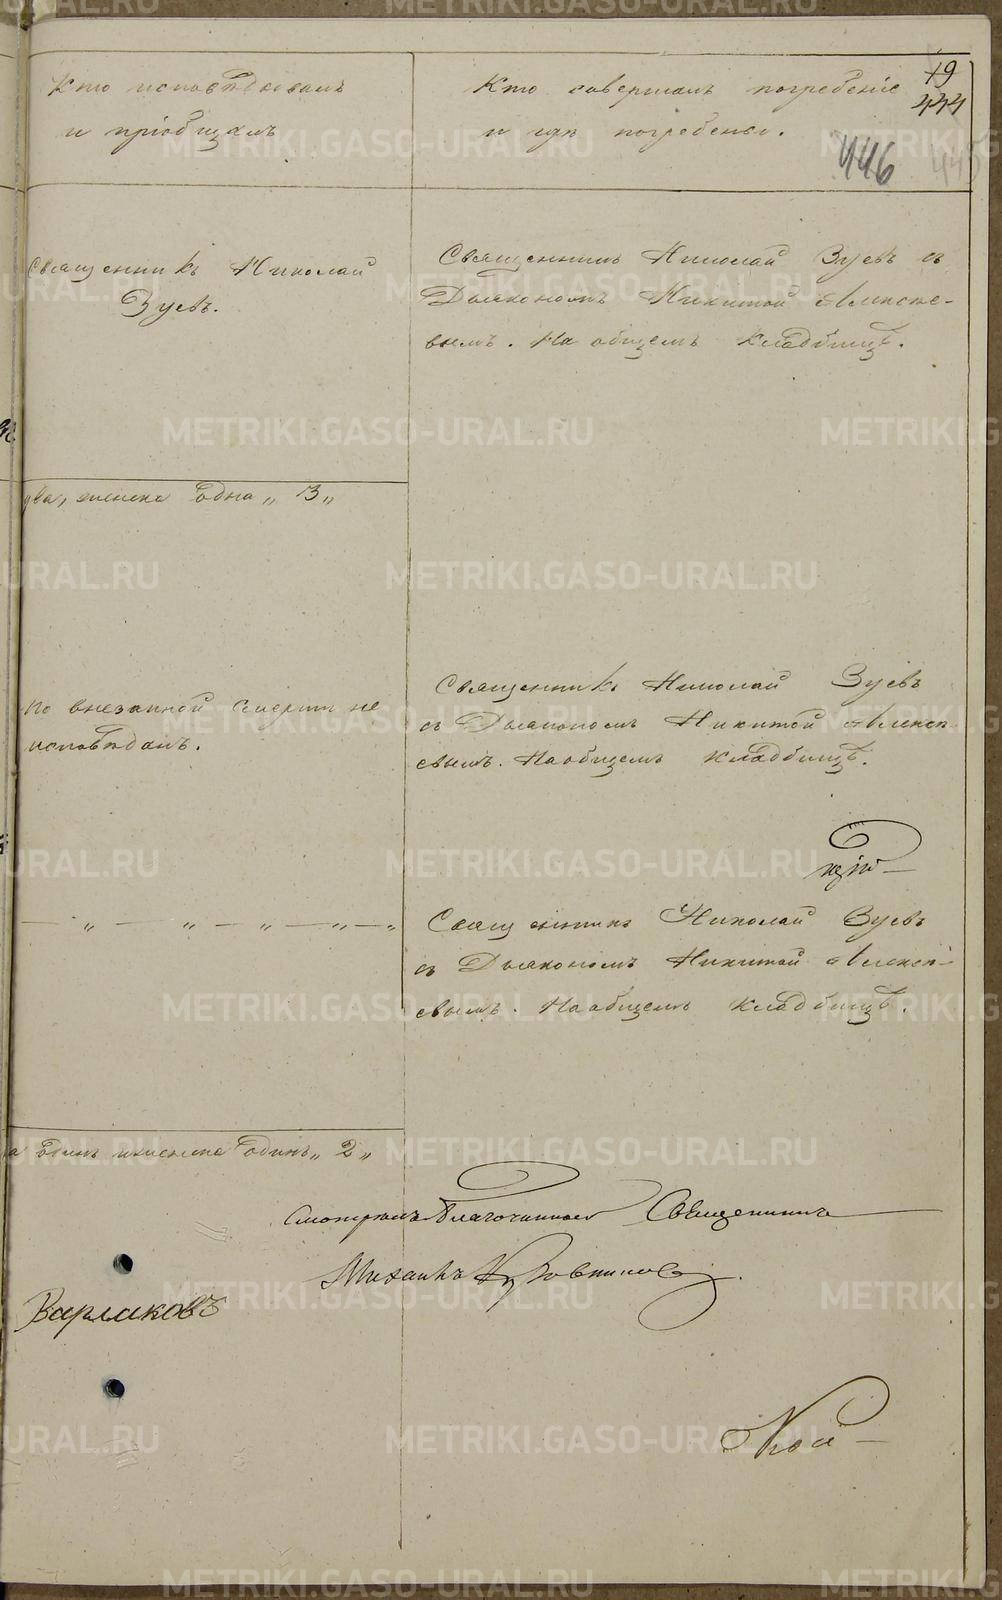 Кто исповѣдывалъ
и пріобщалъ
Кто совершалъ погребеніе
и гдѣ погребены.
19
444
446
Священникъ Николай
Зуевъ.
Священникъ Николай Зуевъ съ
Дьякономъ Никитой Алексѣе-
вымъ. На общемъ Кладбищѣ.
два, женска одна „ 3 „
По внезапной смерти не
исповѣданъ.
Священникъ Николай Зуевъ
съ Дьякономъ Никитой Алексѣ-
евымъ. На общемъ Кладбищѣ.
— „ — „ — „ — „ — „
Священникъ Николай Зуевъ
съ Дьякономъ Никитой Алексѣ-
евымъ. На общемъ Кладбищѣ.
одинъ „ 2 „
Смотрѣлъ Благочинный Священникъ
Михаилъ
Варлаковъ
METRIKI.GASO-URAL.RU